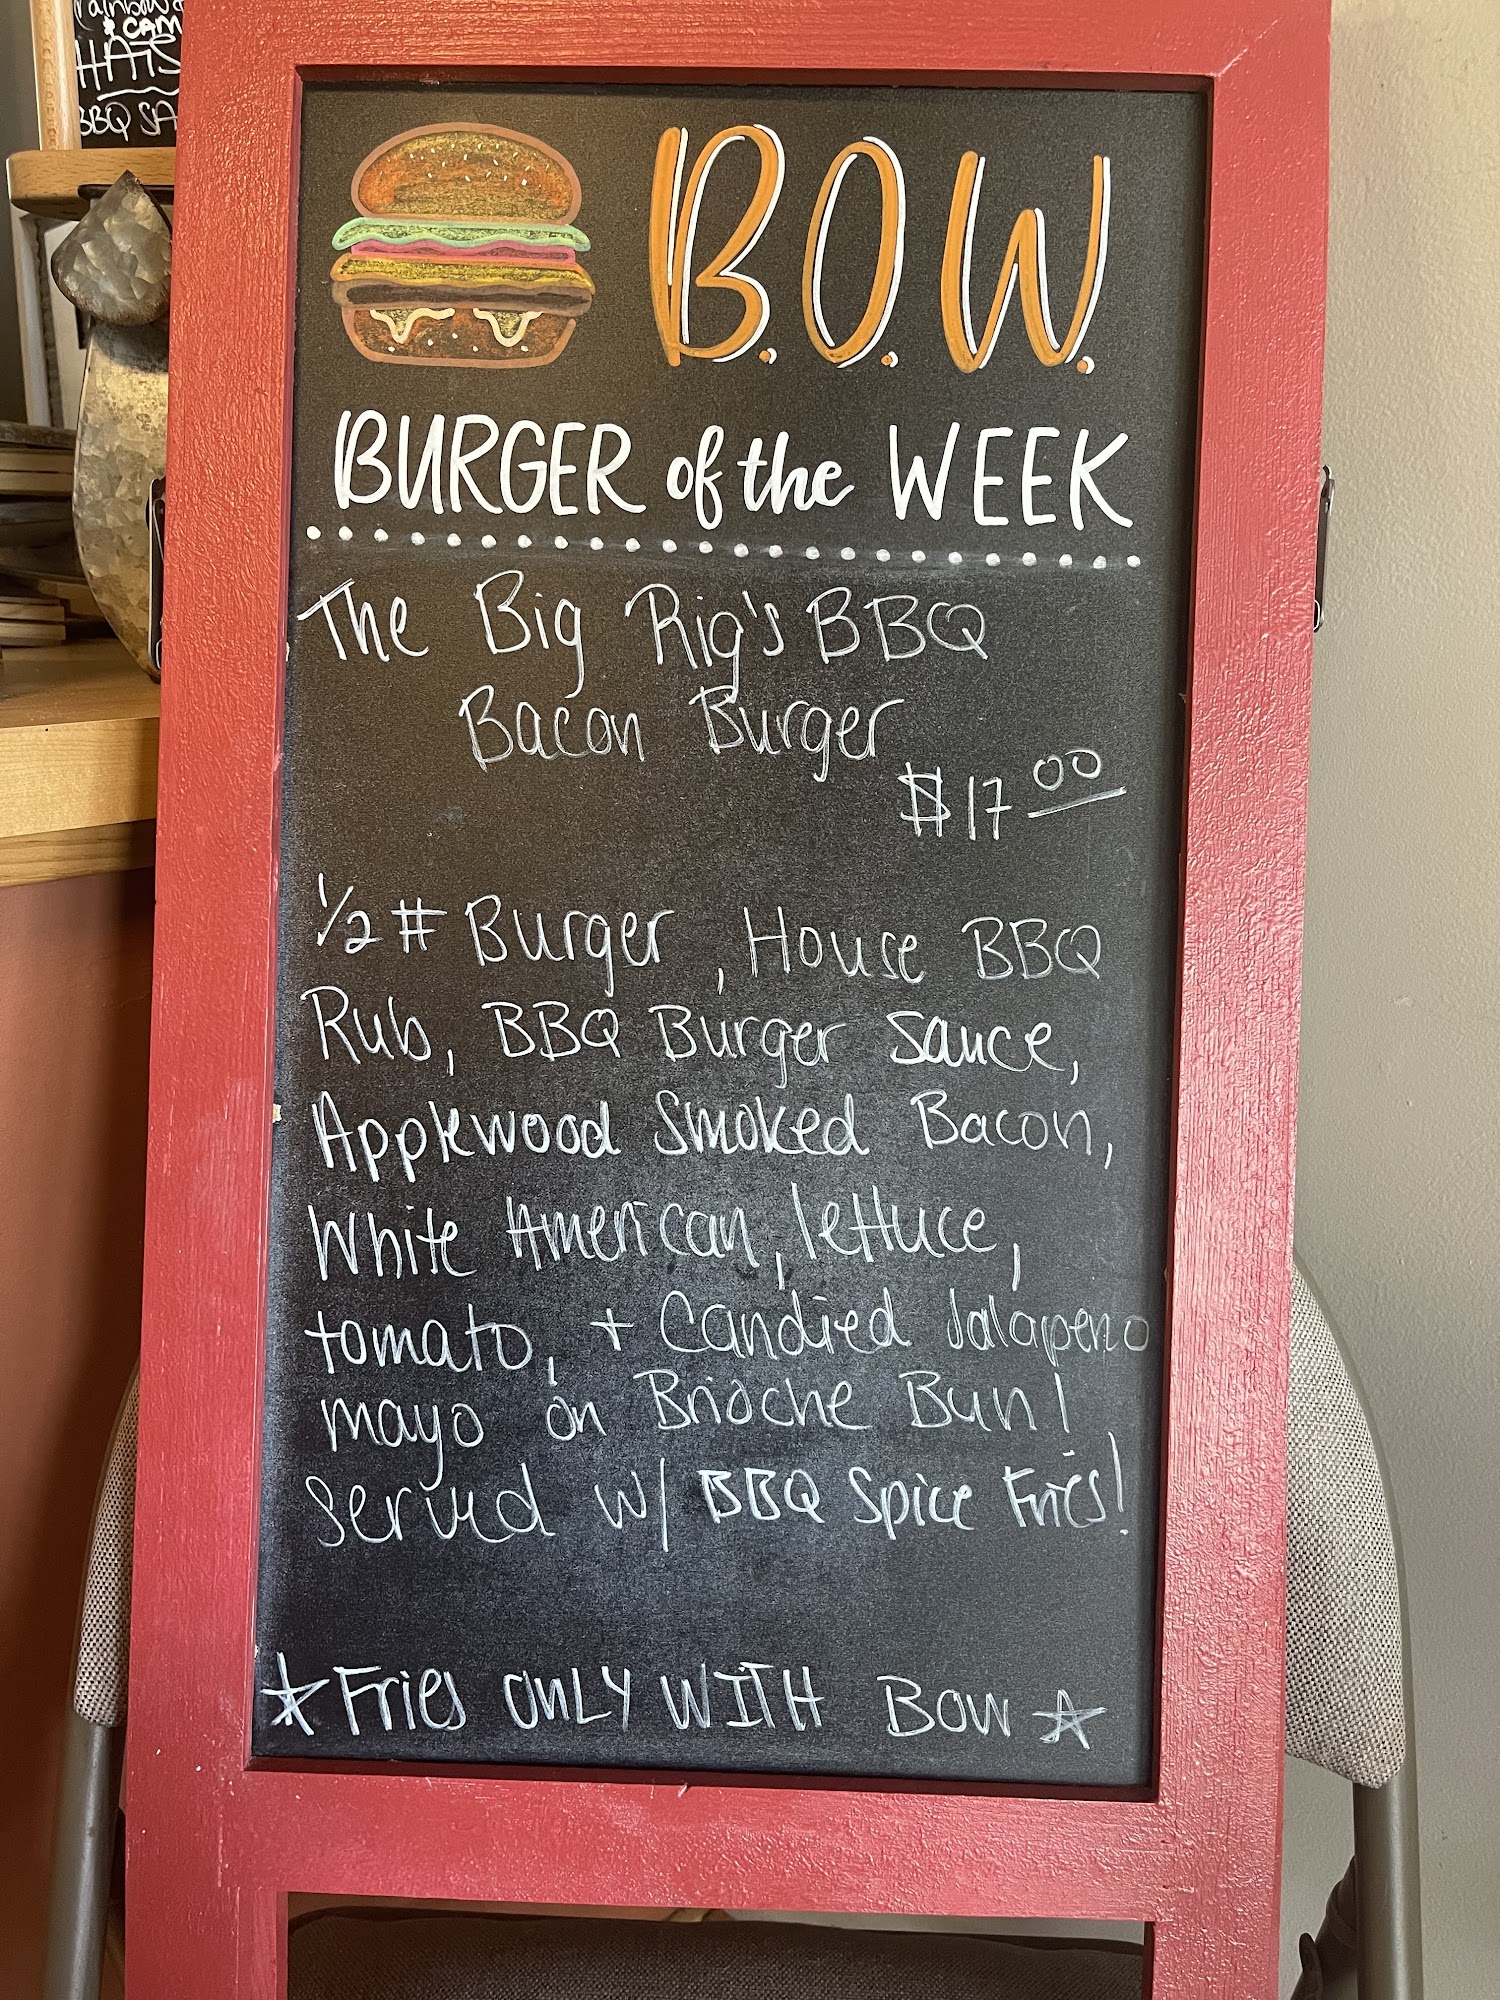 & CAM
HATS
BBQ SA
B.O.W.
BURGER of the WEEK
The Big Rig's BBQ
Bacon Burger
$17 00
1/2 # Burger, House BBQ
Rub, BBQ Burger Sauce,
Applewood Smoked Bacon,
White American, lettuce,
tomato, + Candied Jalapeno
mayo on Brioche Bun!
Served w/ BBQ Spice Fries!
☆ Fries ONLY WITH BOW ☆